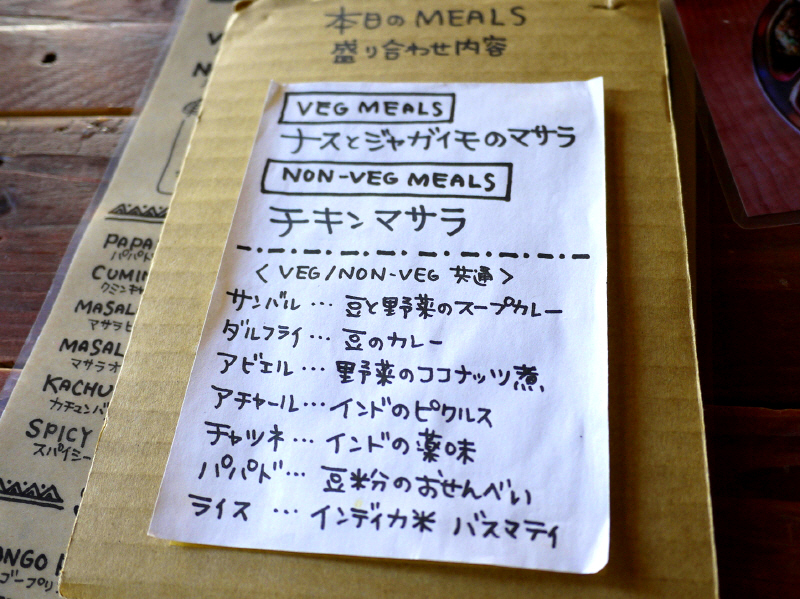 本日のMEALS
盛り合わせ内容
VEG MEALS
ナスとジャガイモのマサラ
NON-VEG MEALS
チキンマサラ
〈 VEG/NON-VEG 共通 〉
サンバル … 豆と野菜のスープカレー
ダルフライ … 豆のカレー
アビエル … 野菜のココナッツ煮
アチャール … インドのピクルス
チャツネ … インドの薬味
パパド … 豆粉のおせんべい
ライス … インディカ米 バスマティ
PAPA
パパド
CUMIN
クミンキャ
MASAL
マサラピ
MASAL
マサラオ
KACHU
カチュンバ
SPICY
スパイシー
ONGO
ゴープリ